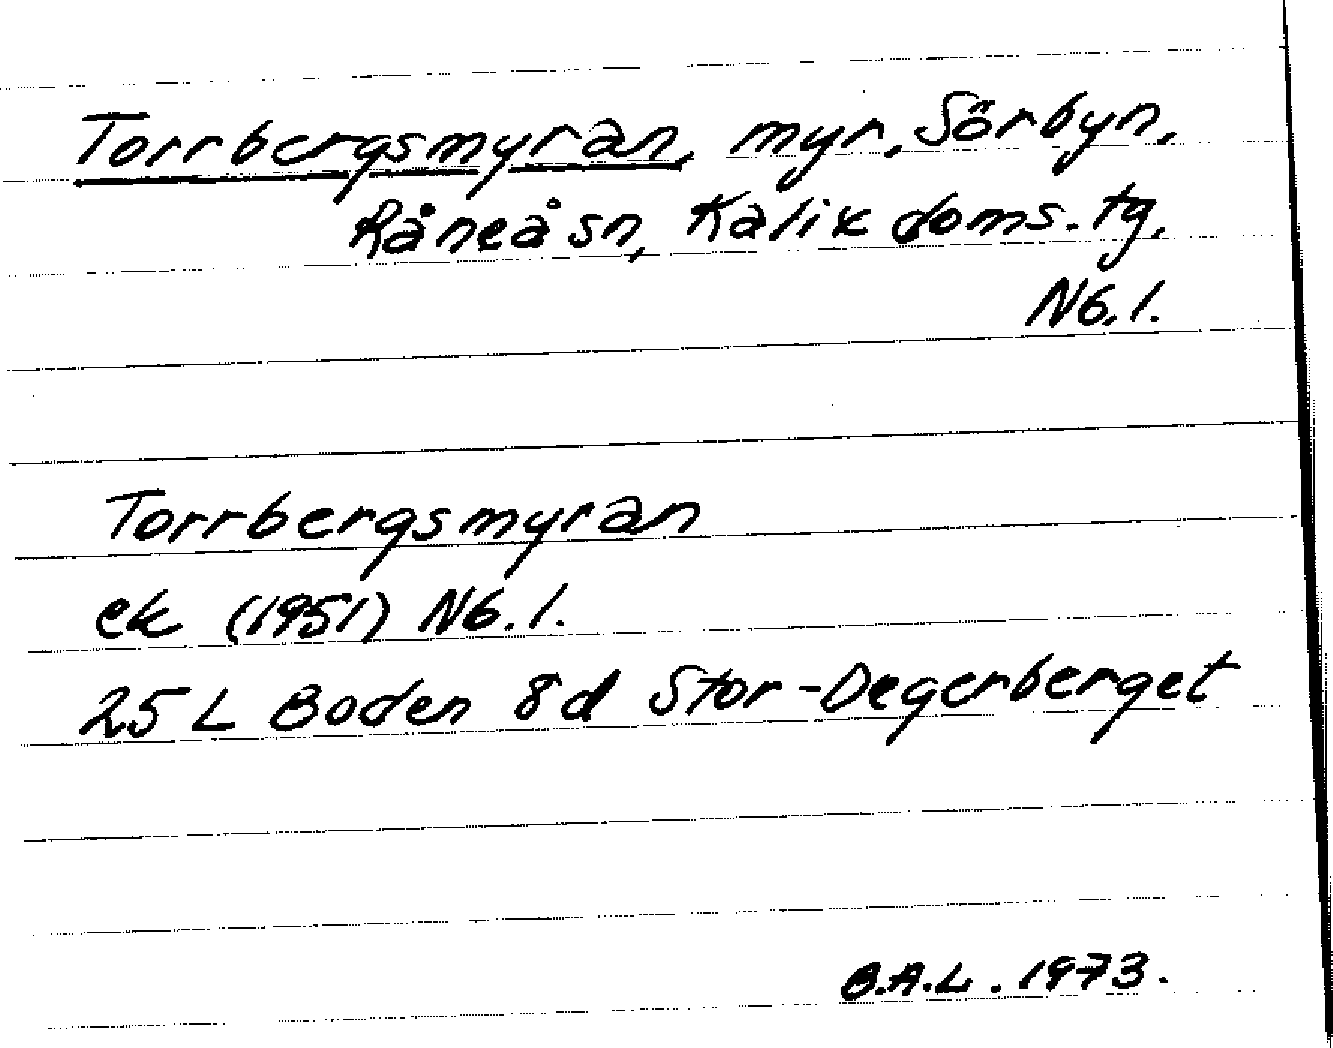 Torrbergsmyran, myr, Sörbyn,
Råneå sn, Kalix doms. tg,
Nb. l.
Torrbergsmyran
ek (1951) Nb. l.
25 L Boden 8d Stor-Degerberget
B.A.L. 1973.